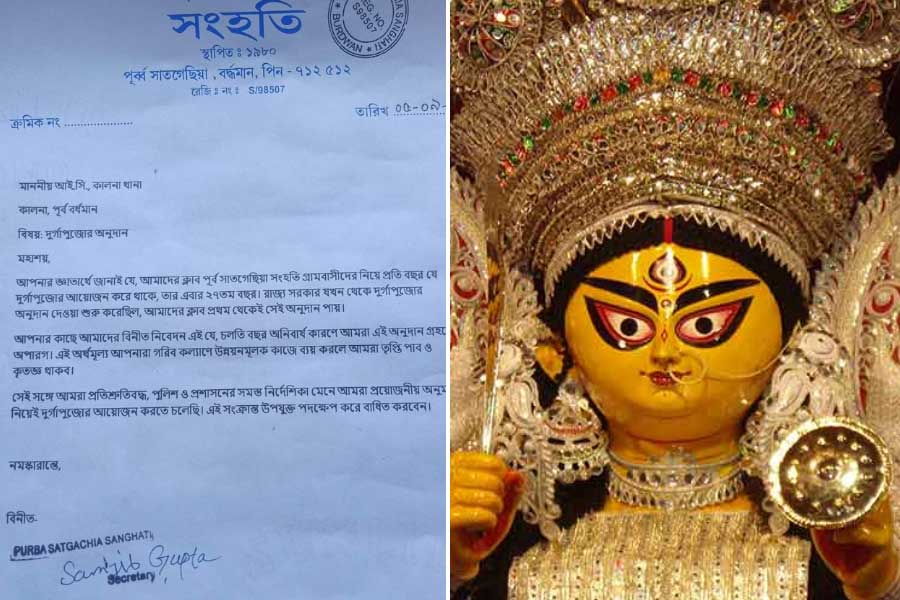 সংহতি
স্থাপিত : ১৯৮০
পূর্ব্ব সাতগেছিয়া , বর্দ্ধমান, পিন - ৭১২ ৫১২
রেজি : নং : S/98507
REG. NO.
S/98507
BURDWAN
SANGHATI
ক্রমিক নং ......................
তারিখ ০৫-০৯-
মাননীয় আই.সি., কালনা থানা
কালনা, পূর্ব বর্ধমান
বিষয়: দুর্গাপুজোর অনুদান
মহাশয়,
আপনার জ্ঞাতার্থে জানাই যে, আমাদের ক্লাব পূর্ব সাতগেছিয়া সংহতি গ্রামবাসীদের নিয়ে প্রতি বছর যে
দুর্গাপুজোর আয়োজন করে থাকে, তার এবার ২৭তম বছর। রাজ্য সরকার যখন থেকে দুর্গাপুজোর
অনুদান দেওয়া শুরু করেছিল, আমাদের ক্লাব প্রথম থেকেই সেই অনুদান পায়।
আপনার কাছে আমাদের বিনীত নিবেদন এই যে, চলতি বছর অনিবার্য কারণে আমরা এই অনুদান গ্রহণে
অপারগ। এই অর্থমূল্য আপনারা গরিব কল্যাণে উন্নয়নমূলক কাজে ব্যয় করলে আমরা তৃপ্তি পাব ও
কৃতজ্ঞ থাকব।
সেই সঙ্গে আমরা প্রতিশ্রুতিবদ্ধ, পুলিশ ও প্রশাসনের সমস্ত নির্দেশিকা মেনে আমরা প্রয়োজনীয় অনুম
নিয়েই দুর্গাপুজোর আয়োজন করতে চলেছি। এই সংক্রান্ত উপযুক্ত পদক্ষেপ করে বাধিত করবেন।
নমস্কারান্তে,
বিনীত-
PURBA SATGACHIA SANGHATI
Sanjib Gupta
Secretary